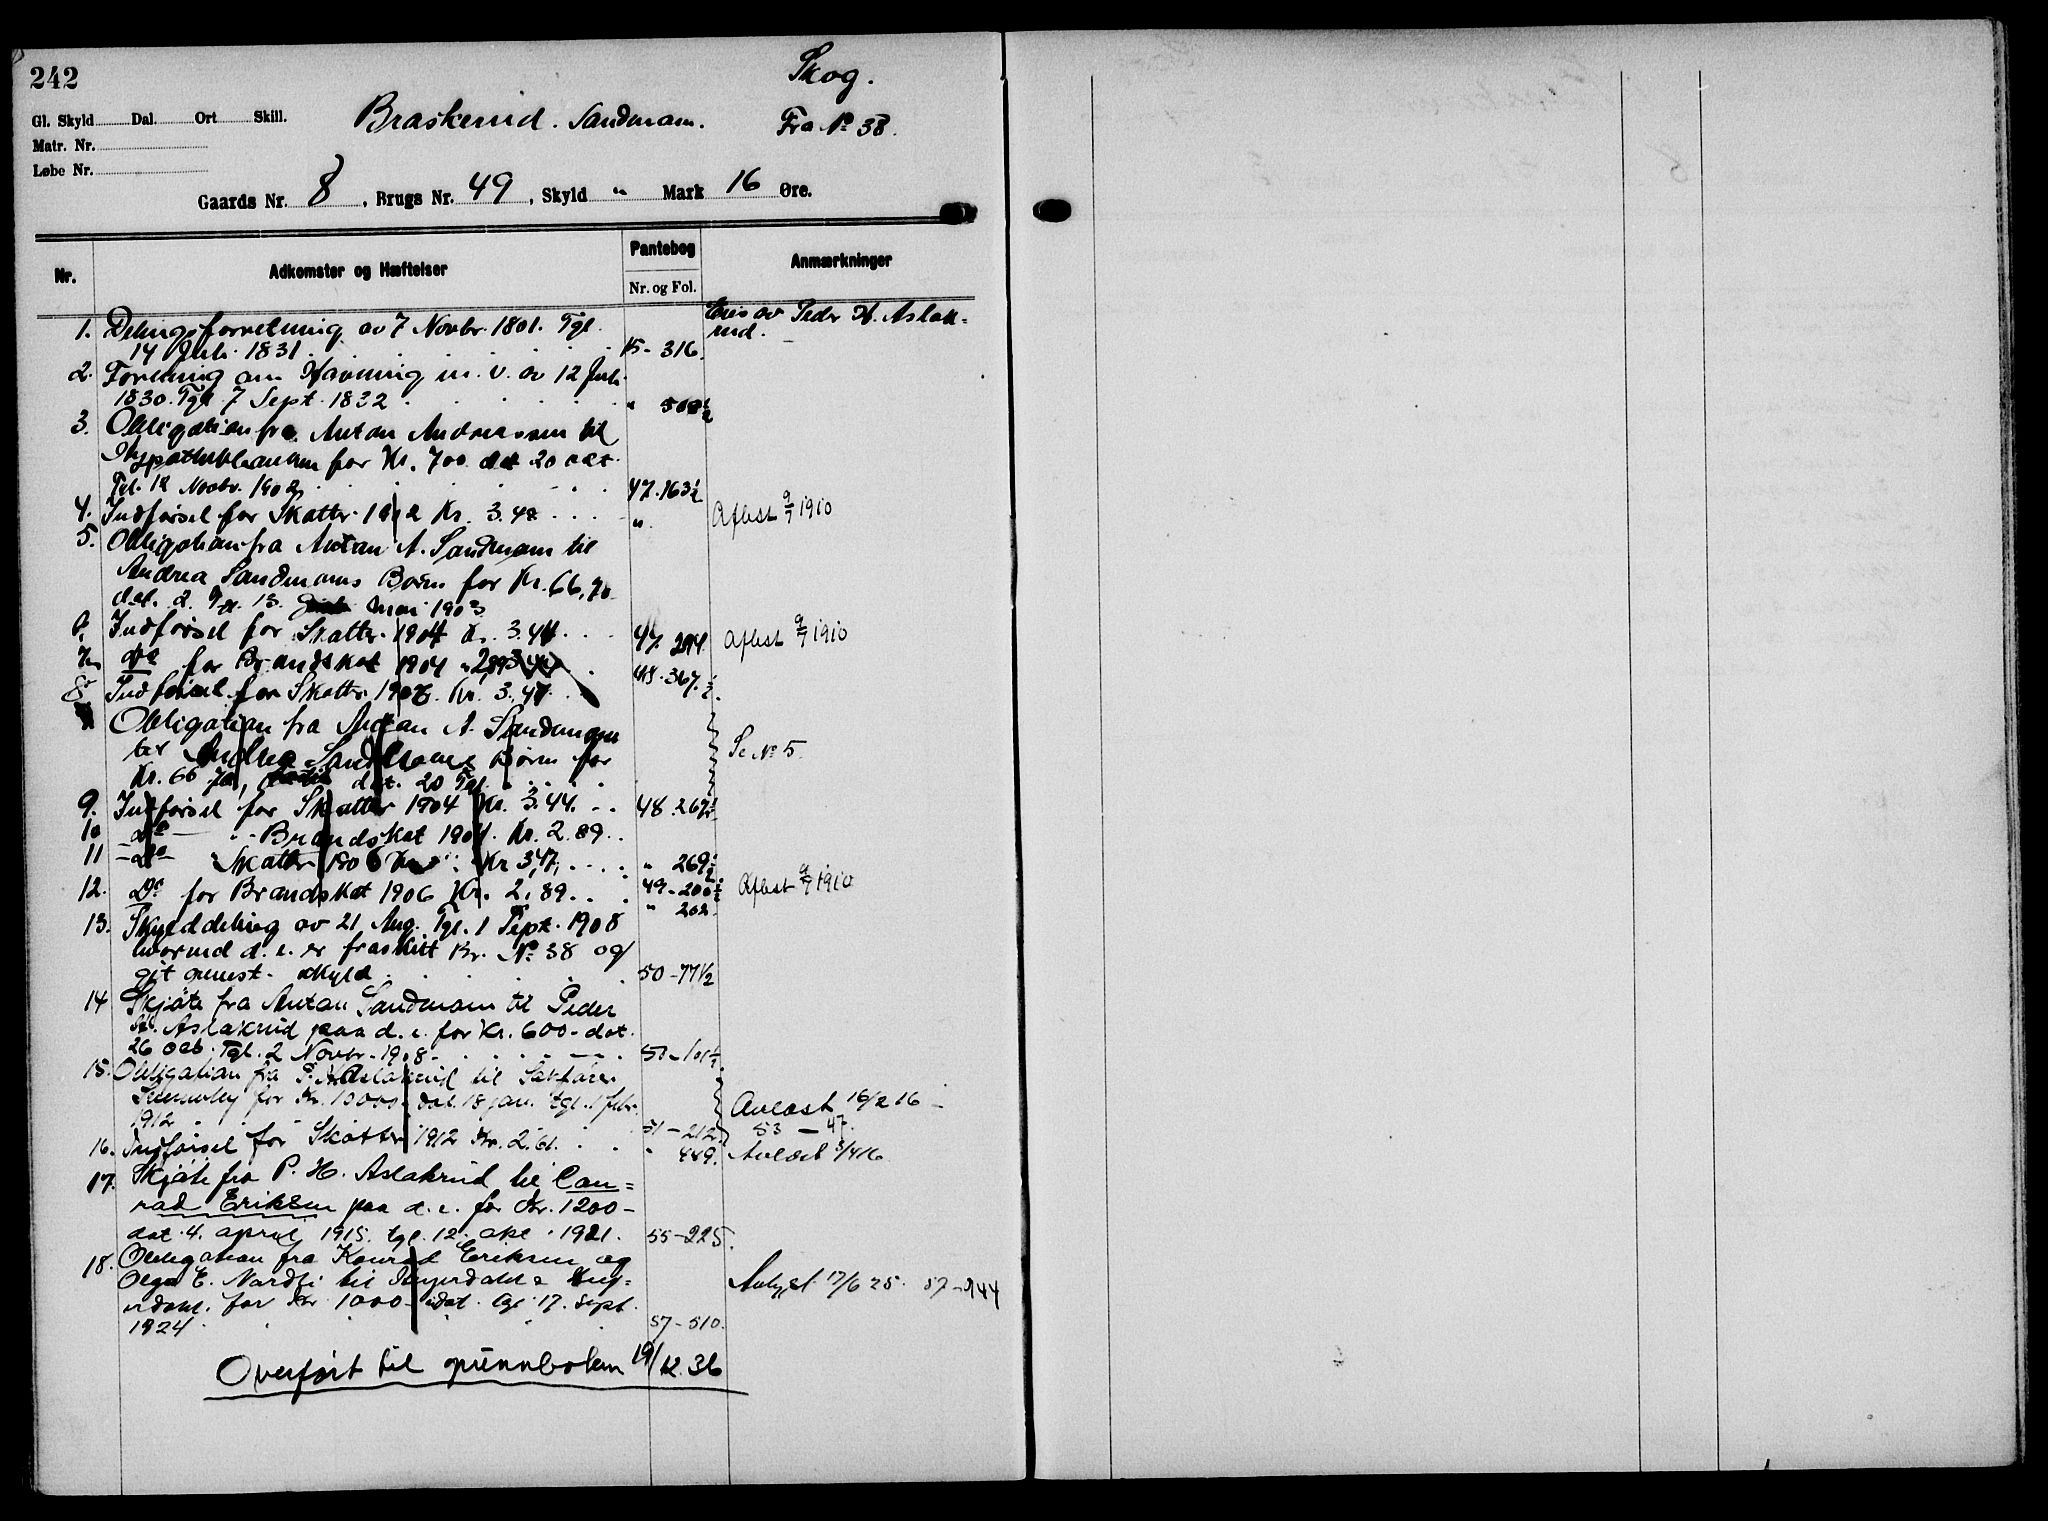 242
Skog.
Gl. Skyld Dal. Ort Skill.
Braskerud. Sandmoen.
Fra No 38.
Matr. Nr.
Løbe Nr.
Gaards Nr. 8, Brugs Nr. 49, Skyld " Mark 16 Øre.
Nr. Adkomster og Hæftelser Pantebog Nr. og Fol. Anmærkninger
Eies av Peder H. Aslak=
rud.
1. Delingsforretning av 7 Novbr. 1801. Tgl.
14 Juli 1831 15-316.
2. Forening om Havning m. v. av 12 Juli
1830. Tgl 7 Sept. 1832 " 508½
3. Obligation fra Anton Andreassen til
Hypothekbanken for Kr. 700 dat 20 oct.
Tgl. 12 Novbr. 1902 47-163½
4. Indførsel for Skatter 1902 Kr. 3.42 " Aflest 9/7 1910
5. Obligation fra Anton A. Sandmoen til
Andrea Sandmoens Børn for Kr. 66,70
dat. 2. Tgl. 13. Mai 1903
6. Indførsel for Skatter 1904 Kr. 3.44 47. 294. Aflest 9/7 1910
7. do for Brandskat 1904 " 2,89 48. 367.½
8. Indførsel for Skatter 1906 Kr. 3.47
Obligation fra Anton A. Sandmoen
til Andrea Sandmoens Børn for
Kr. 66 70, dat. 20 Tgl. Se No 5.
9. Indførsel for Skatter 1904 Kr. 3.44. 48.267½
10 -do- " Brandskat 1904. Kr. 2.89.
11 -do- Skatter 1906 Kr 3,47. " 269½
12. Do for Brandskat 1906 Kr. 2,89. 49-200½ Aflest 9/7 1910
" 202.
13. Skylddeling av 21 Aug. Tgl. 1 Sept. 1908
hvorved d. e. er fraskilt Br. No 38 og
git nævnt. skyld 50-77½
14 Skjøte fra Anton Sandmoen til Peder
H. Aslakrud paa d. e. for Kr. 600- dat.
26 Oct. Tgl. 2 Novbr. 1908- 50-101½
15. Obligation fra P. H. Aslakrud til Sakfører
for Kr. 1000- dat. 18 jan. tgl. 1 febr.
1912 51-212. Avlæst 16/2 16-
53-47.
16. Indførsel for Skatter 1912 Kr. 2.61. " 449. Avlæst 3/4 16
17. Skjøte fra P. H. Aslakrud til Con=
rad Eriksen paa d. e. for Kr. 1200-
dat. 4. april 1915. tgl. 12. okt. 1921. 55-225.
18. Obligation fra Konrad Eriksen og
Olga E. Nordli til
for Kr 1000- dat. tgl 17. sept.
1924. 57-510. Avlyst 17/6 25. 57-944
Overført til grunnboken 19/12.36